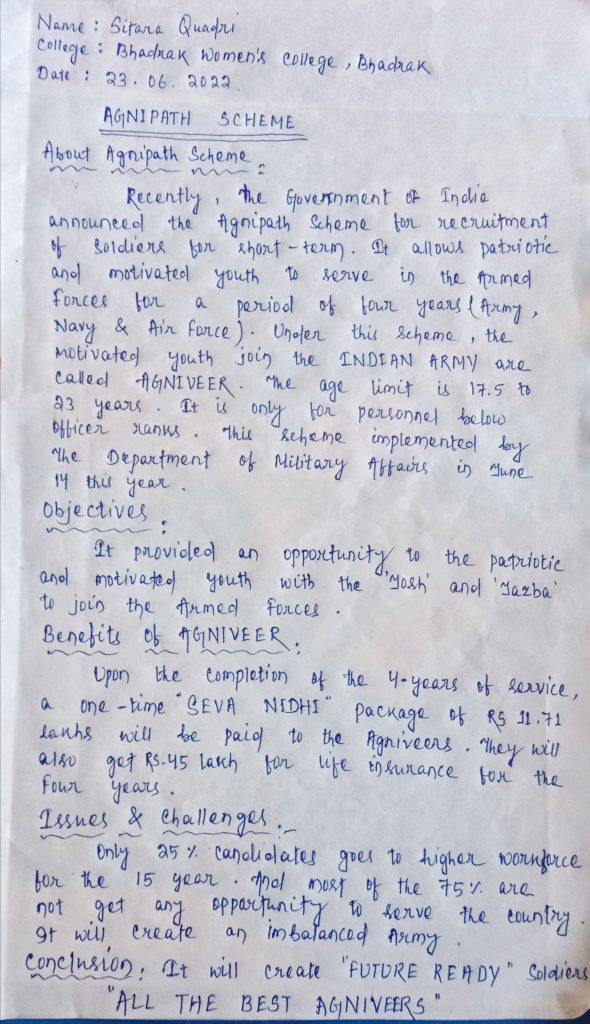 Name : Sitara Quadri
College : Bhadrak Women's College, Bhadrak
Date : 23.06.2022
AGNIPATH SCHEME
About Agnipath Scheme :
Recently, the Government of India
announced the Agnipath Scheme for recruitment
of Soldiers for short-term. It allows patriotic
and motivated youth to serve in the Armed
Forces for a period of four years (Army,
Navy & Air Force). Under this Scheme, the
motivated youth join the INDIAN ARMY are
called AGNIVEER. The age limit is 17.5 to
23 years. It is only for personnel below
officer ranks. This scheme implemented by
the Department of Military Affairs in June
14 this year.
Objectives :
It provided an opportunity to the patriotic
and motivated youth with the 'Josh' and 'Jazba'
to join the Armed Forces.
Benefits of AGNIVEER :
Upon the completion of the 4-years of service,
a one-time "SEVA NIDHI" package of RS 11.71
lakhs will be paid to the Agniveers. They will
also get RS.45 lakh for life insurance for the
four years.
Issues & Challenges :-
Only 25% candidates goes to higher workforce
for the 15 year. And most of the 75% are
not get any opportunity to serve the country.
It will create an imbalanced Army.
Conclusion : It will create "FUTURE READY" Soldiers
"ALL THE BEST AGNIVEERS"